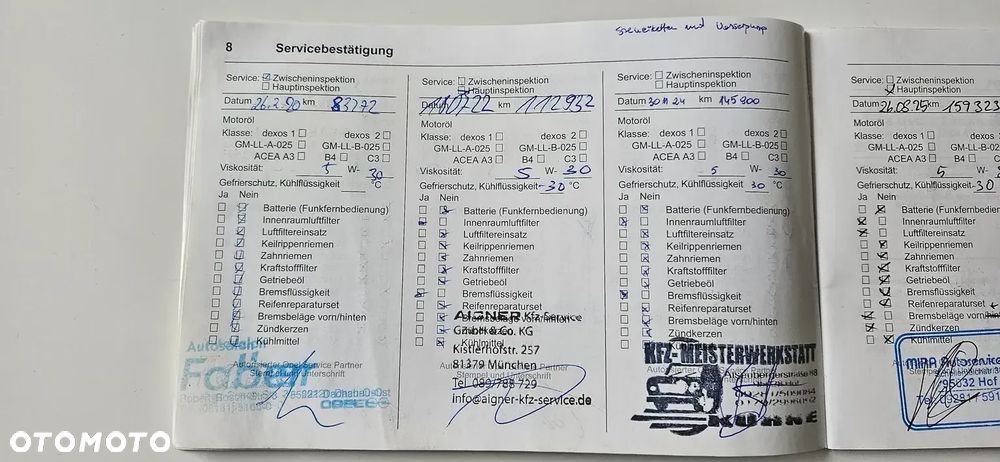 und
8 Servicebestätigung
Service: Zwischeninspektion
Hauptinspektion
Datum 26.2.20 km 83272
Motoröl
Klasse: dexos 1 dexos 2
GM-LL-A-025 GM-LL-B-025
ACEA A3 B4 C3
Viskosität: 5 W- 30
Gefrierschutz, Kühlflüssigkeit °C
Ja Nein
Batterie (Funkfernbedienung)
Innenraumluftfilter
Luftfiltereinsatz
Keilrippenriemen
Zahnriemen
Kraftstofffilter
Getriebeöl
Bremsflüssigkeit
Reifenreparaturset
Bremsbeläge vorn/hinten
Zündkerzen
Kühlmittel
Autobereich
Faber
Autorisierter Opel Service Partner
Stempel und Unterschrift
Service: Zwischeninspektion
Hauptinspektion
Datum km 112932
Motoröl
Klasse: dexos 1 dexos 2
GM-LL-A-025 GM-LL-B-025
ACEA A3 B4 C3
Viskosität: 5 W- 30
Gefrierschutz, Kühlflüssigkeit -30 °C
Ja Nein
Batterie (Funkfernbedienung)
Innenraumluftfilter
Luftfiltereinsatz
Keilrippenriemen
Zahnriemen
Kraftstofffilter
Getriebeöl
Bremsflüssigkeit
Reifenreparaturset
Bremsbeläge vorn/hinten
Zündkerzen
Kühlmittel
AIGNER Kfz-Service
GmbH & Co. KG
Kistlerhofstr. 257
81379 München
Tel. 089/788 729
info@aigner-kfz-service.de
Service: Zwischeninspektion
Hauptinspektion
Datum 30 11 24 km 145900
Motoröl
Klasse: dexos 1 dexos 2
GM-LL-A-025 GM-LL-B-025
ACEA A3 B4 C3
Viskosität: 5 W- 30
Gefrierschutz, Kühlflüssigkeit 30 °C
Ja Nein
Batterie (Funkfernbedienung)
Innenraumluftfilter
Luftfiltereinsatz
Keilrippenriemen
Zahnriemen
Kraftstofffilter
Getriebeöl
Bremsflüssigkeit
Reifenreparaturset
Bremsbeläge vorn/hinten
Zündkerzen
Kühlmittel
KFZ-MEISTERWERKSTATT
KÜHNE
Service: Zwischeninspektion
Hauptinspektion
Datum 26.08.25 km 159323
Motoröl
Klasse: dexos 1
GM-LL-A-025
ACEA A3
Viskosität: 5
Gefrierschutz, Kühlflüssigkeit -30
Ja Nein
Batterie (Funkfernbedienung)
Innenraumluftfilter
Luftfiltereinsatz
Keilrippenriemen
Zahnriemen
Kraftstofffilter
Getriebeöl
Bremsflüssigkeit
Reifenreparaturset
Bremsbeläge vorn/hinten
Zündkerzen
Kühlmittel
MIRA Autoservice
95032 Hof
OTOMOTO